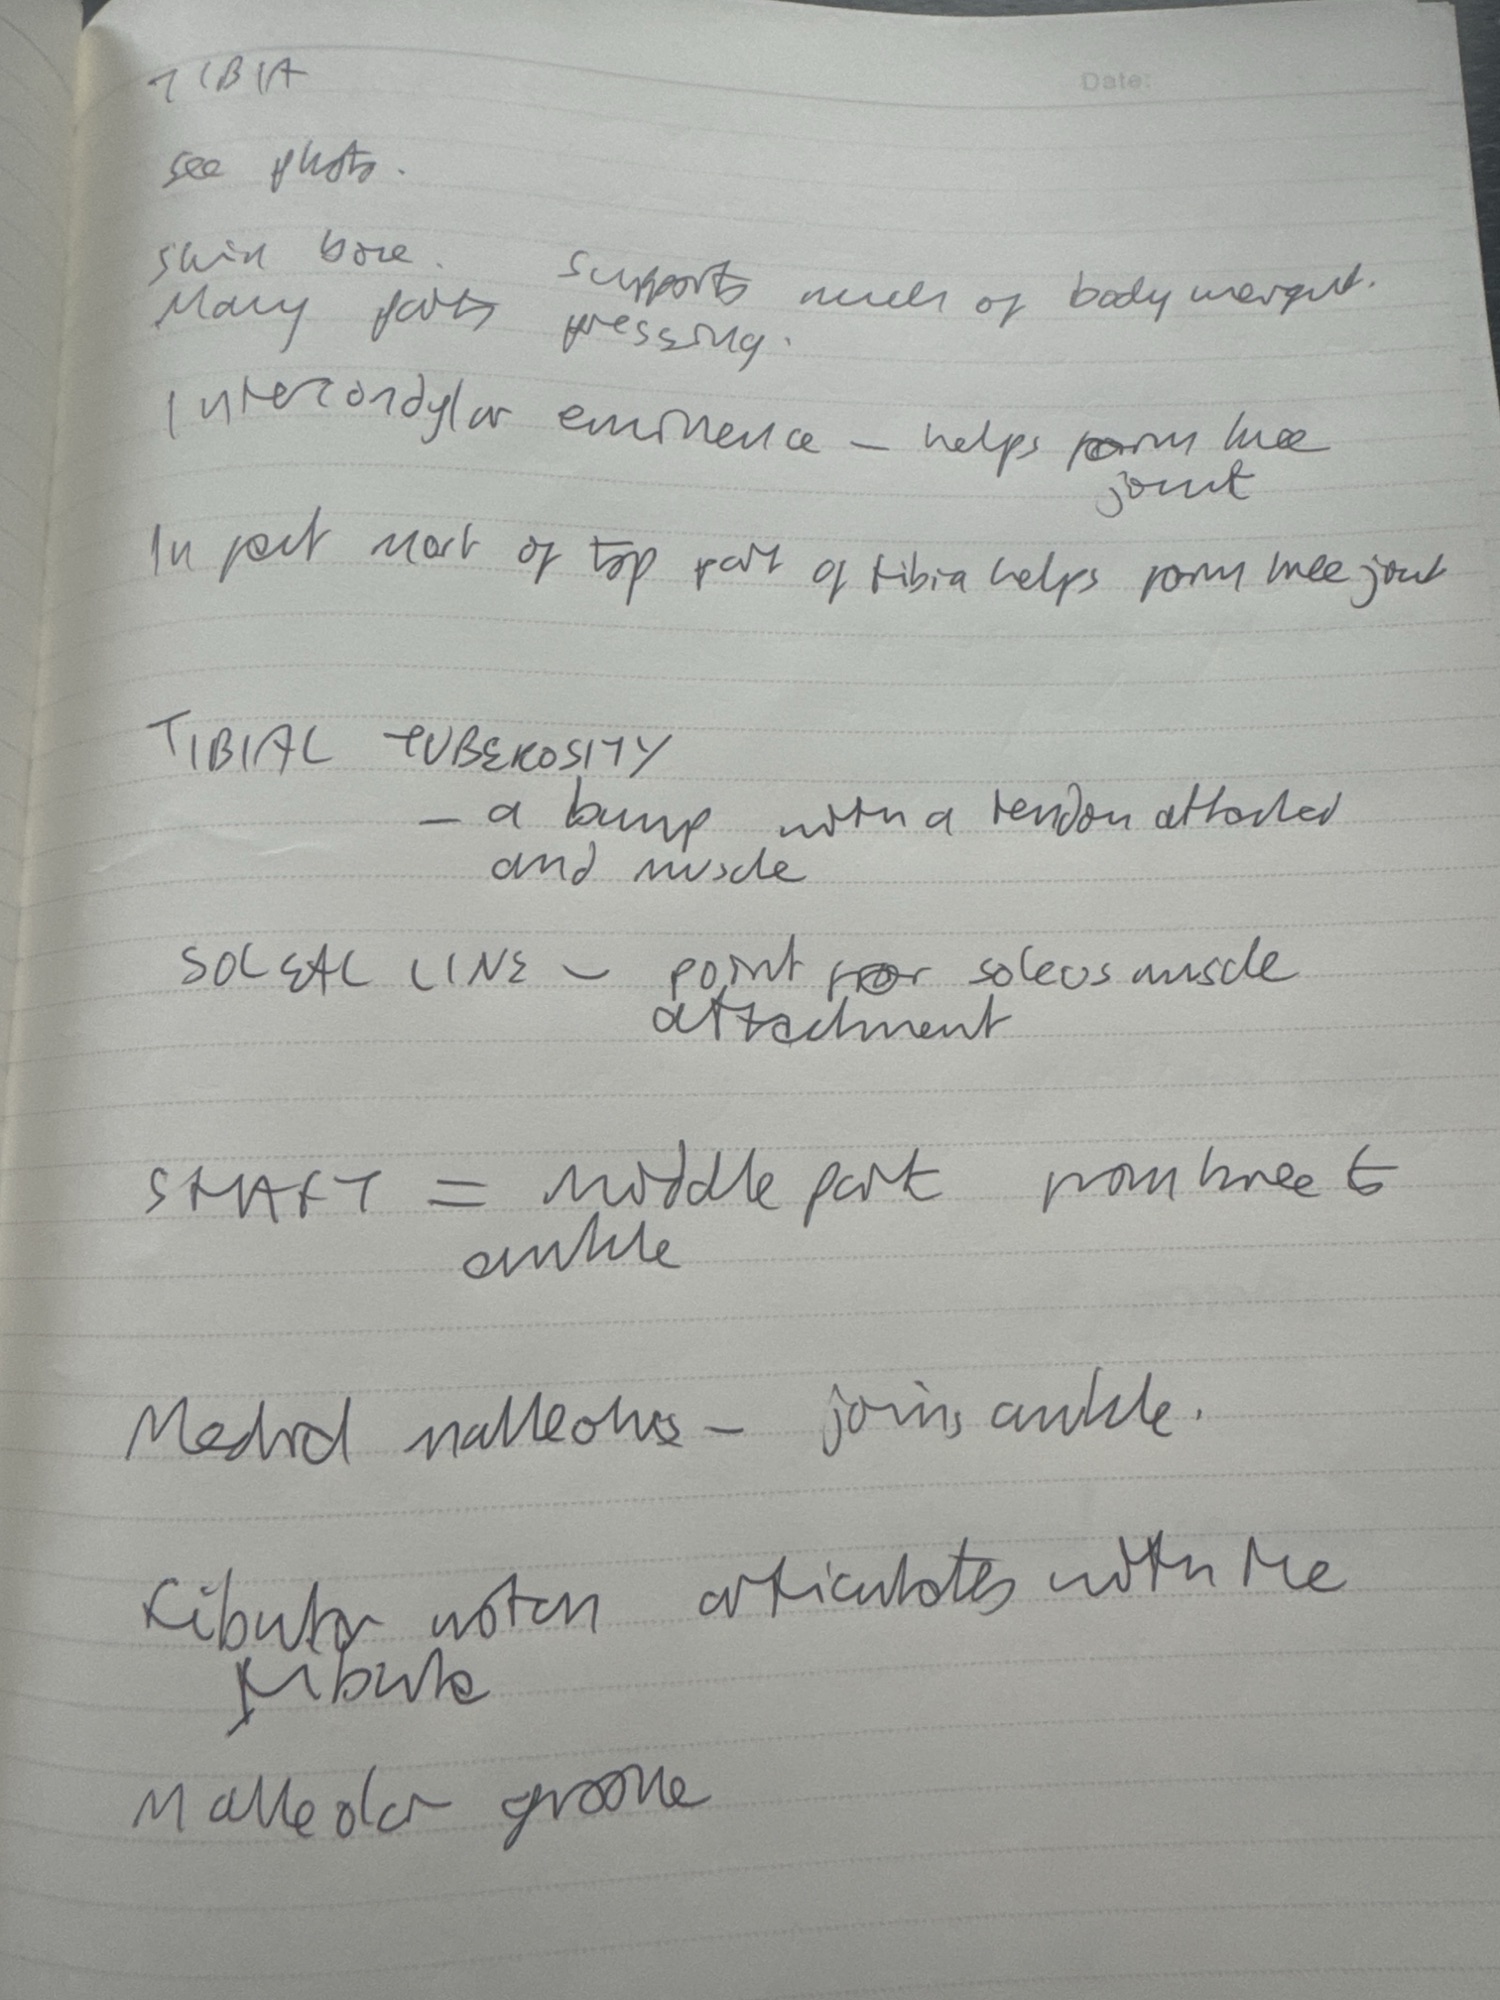 Date:
TIBIA
see photo.
shin bone. supports much of body weight.
Many parts pressing.
Intercondylar eminence - helps form knee
joint
In fact most of top part of tibia helps form knee joint
TIBIAL TUBEROSITY
- a bump with a tendon attached
and muscle
SOLEAL LINE - point for soleus muscle
attachment
SHAFT = middle part from knee to
ankle
Medial malleolus - joins ankle.
fibular notch articulates with the
fibula
Malleolar groove